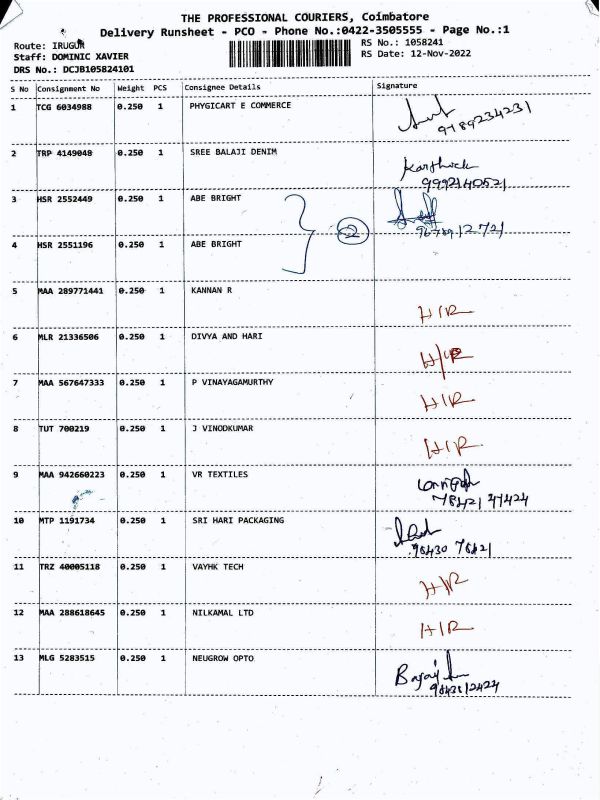 THE PROFESSIONAL COURIERS, Coimbatore
Delivery Runsheet - PCO - Phone No.:0422-3505555 - Page No.:1
Route: IRUGUR
Staff: DOMINIC XAVIER
DRS No.: DCJB105824101
RS No.: 1058241
RS Date: 12-Nov-2022
S No Consignment No Weight PCS Consignee Details Signature
1 TCG 6034988 0.250 1 PHYGICART E COMMERCE
9789234231
2 TRP 4149048 0.250 1 SREE BALAJI DENIM Karthick
9992140521
3 HSR 2552449 0.250 1 ABE BRIGHT
2
4 HSR 2551196 0.250 1 ABE BRIGHT
5 MAA 289771441 0.250 1 KANNAN R H/R
6 MLR 21336506 0.250 1 DIVYA AND HARI H/R
7 MAA 567647333 0.250 1 P VINAYAGAMURTHY H/R
8 TUT 700219 0.250 1 J VINODKUMAR H/R
9 MAA 942660223 0.250 1 VR TEXTILES
78421 41424
10 MTP 1191734 0.250 1 SRI HARI PACKAGING
98430 78421
11 TRZ 40005118 0.250 1 VAYHK TECH H/R
12 MAA 288618645 0.250 1 NILKAMAL LTD H/R
13 MLG 5283515 0.250 1 NEUGROW OPTO
9843812424